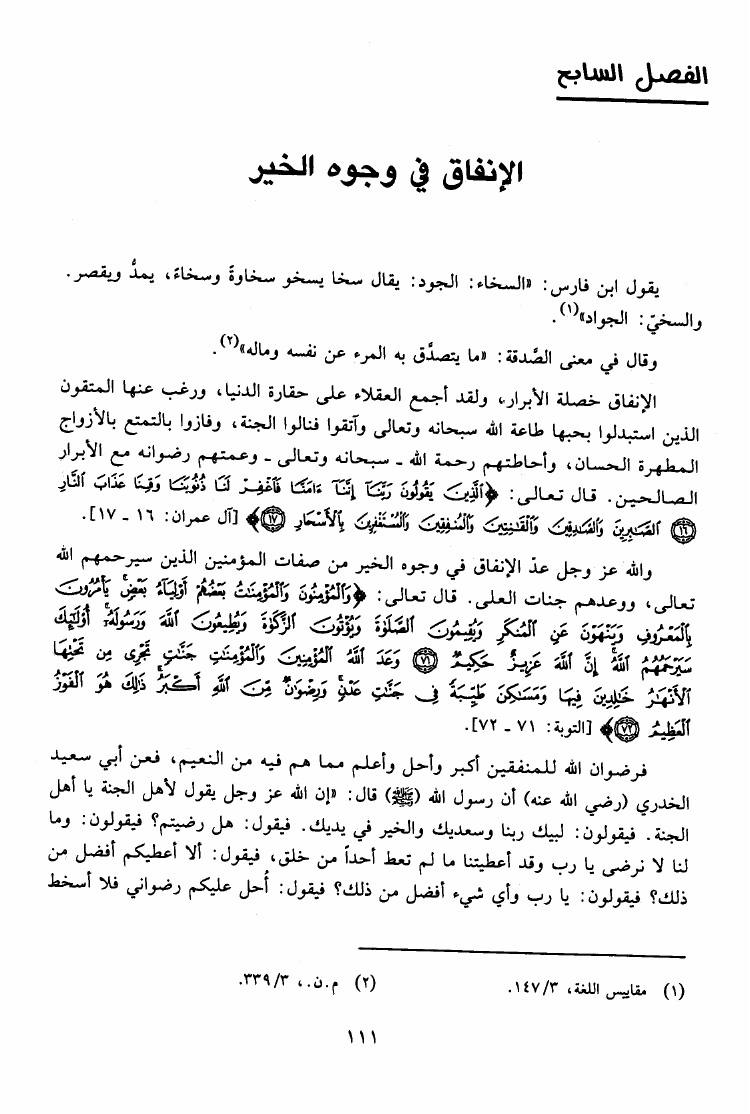 الفصل السابع
الإنفاق في وجوه الخير
يقول ابن فارس: «السخاء: الجود: يقال سخا يسخو سخاوةً وسخاءً، يمدُّ ويقصر.
والسخيّ: الجواد»(١).
وقال في معنى الصَّدقة: «ما يتصدَّق به المرء عن نفسه وماله»(٢).
الإنفاق خصلة الأبرار، ولقد أجمع العقلاء على حقارة الدنيا، ورغب عنها المتقون
الذين استبدلوا بحبها طاعة الله سبحانه وتعالى وآتقوا فنالوا الجنة، وفازوا بالتمتع بالأزواج
المطهرة الحسان، وأحاطتهم رحمة الله ـ سبحانه وتعالى ـ وعمتهم رضوانه مع الأبرار
الصالحين. قال تعالى: ﴿ٱلَّذِينَ يَقُولُونَ رَبَّنَآ إِنَّنَآ ءَامَنَّا فَٱغْفِرْ لَنَا ذُنُوبَنَا وَقِنَا عَذَابَ ٱلنَّارِ
(١٦) ٱلصَّٰبِرِينَ وَٱلصَّٰدِقِينَ وَٱلْقَٰنِتِينَ وَٱلْمُنفِقِينَ وَٱلْمُسْتَغْفِرِينَ بِٱلْأَسْحَارِ (١٧)﴾ [آل عمران: ١٦ ـ ١٧].
والله عز وجل عدّ الإنفاق في وجوه الخير من صفات المؤمنين الذين سيرحمهم الله
تعالى، ووعدهم جنات العلى. قال تعالى: ﴿وَٱلْمُؤْمِنُونَ وَٱلْمُؤْمِنَٰتُ بَعْضُهُمْ أَوْلِيَآءُ بَعْضٍ يَأْمُرُونَ
بِٱلْمَعْرُوفِ وَيَنْهَوْنَ عَنِ ٱلْمُنكَرِ وَيُقِيمُونَ ٱلصَّلَوٰةَ وَيُؤْتُونَ ٱلزَّكَوٰةَ وَيُطِيعُونَ ٱللَّهَ وَرَسُولَهُۥٓ أُوْلَٰٓئِكَ
سَيَرْحَمُهُمُ ٱللَّهُ إِنَّ ٱللَّهَ عَزِيزٌ حَكِيمٌ (٧١) وَعَدَ ٱللَّهُ ٱلْمُؤْمِنِينَ وَٱلْمُؤْمِنَٰتِ جَنَّٰتٍ تَجْرِى مِن تَحْتِهَا
ٱلْأَنْهَٰرُ خَٰلِدِينَ فِيهَا وَمَسَٰكِنَ طَيِّبَةً فِى جَنَّٰتِ عَدْنٍ وَرِضْوَٰنٌ مِّنَ ٱللَّهِ أَكْبَرُ ذَٰلِكَ هُوَ ٱلْفَوْزُ
ٱلْعَظِيمُ (٧٢)﴾ [التوبة: ٧١ ـ ٧٢].
فرضوان الله للمنفقين أكبر وأحل وأعلم مما هم فيه من النعيم، فعن أبي سعيد
الخدري (رضي الله عنه) أن رسول الله (ﷺ) قال: «إن الله عز وجل يقول لأهل الجنة يا أهل
الجنة. فيقولون: لبيك ربنا وسعديك والخير في يديك. فيقول: هل رضيتم؟ فيقولون: وما
لنا لا نرضى يا رب وقد أعطيتنا ما لم تعط أحداً من خلق، فيقول: ألا أعطيكم أفضل من
ذلك؟ فيقولون: يا رب وأي شيء أفضل من ذلك؟ فيقول: أُحل عليكم رضواني فلا أسخط
(١) مقاييس اللغة، ١٤٧/٣. (٢) م.ن.، ٣٣٩/٣.
١١١